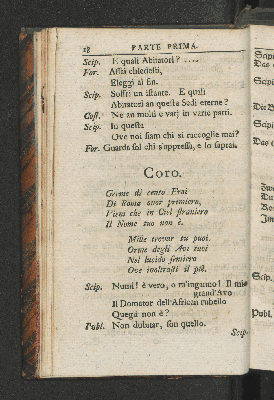 18 PARTE PRIMA.
Scip. E quali Abitatori? ....
For. Assai chiedesti,
Eleggi al fin.
Scip. Soffri un istante. E quali
Abitatori an queste Sedi eterne?
Cost. Ne an molti e varj in varie parti.
Scip. In questa
Ove noi siam chi si raccoglie mai?
For. Guarda sol chi s'appressa, e lo saprai.
CORO.
Germe di cento Eroi
Di Roma onor primiero,
Vieni che in Ciel straniero
Il Nome tuo non è.
Mille trovar tu puoi
Orme degli Avi tuoi
Nel lucido sentiero
Ove inoltrasti il piè.
Scip. Numi! è vero, o m'inganno! Il mio
grand'Avo
Il Domator dell'African rubello
Quegli non è?
Publ. Non dubitar, son quello.
Scip.
Scip.
Publ.